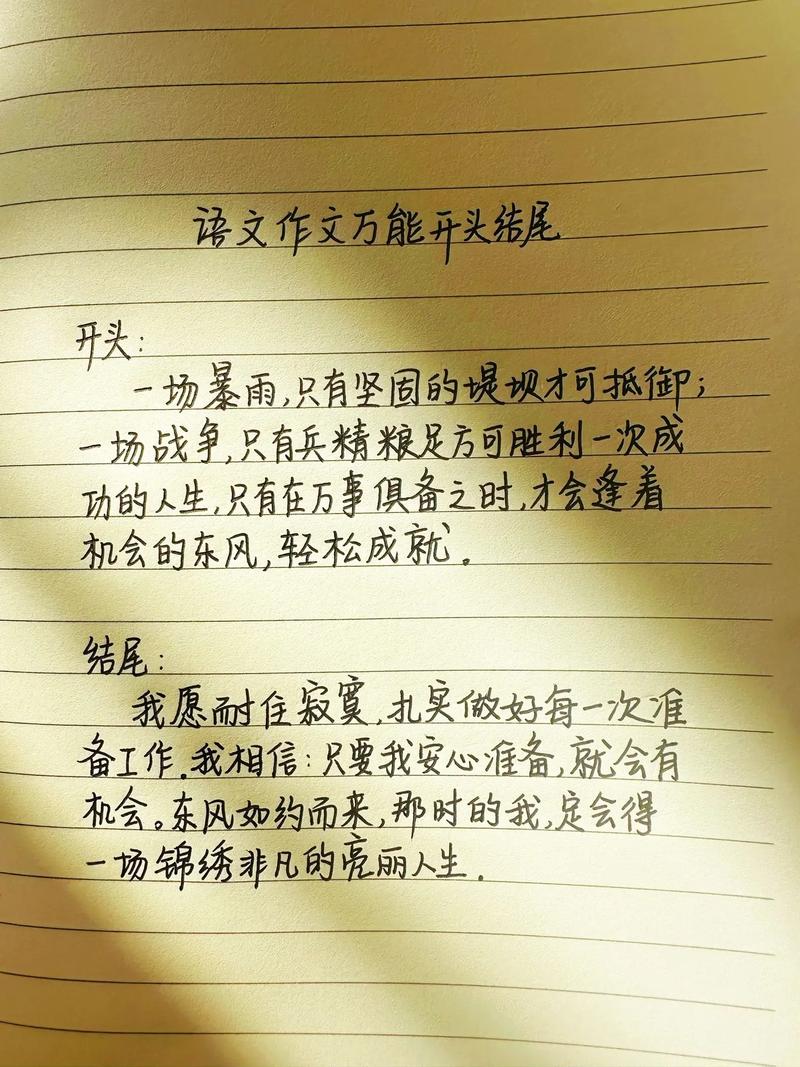 语文作文万能开头结尾
开头:
一场暴雨,只有坚固的堤坝才可抵御;
一场战争,只有兵精粮足方可胜利一次成
功的人生,只有在万事俱备之时,才会逢着
机会的东风,轻松成就.
结尾:
我愿耐住寂寞,扎实做好每一次准
备工作.我相信:只要我安心准备,就会有
机会。东风如约而来,那时的我,定会得
一场锦绣非凡的亮丽人生.